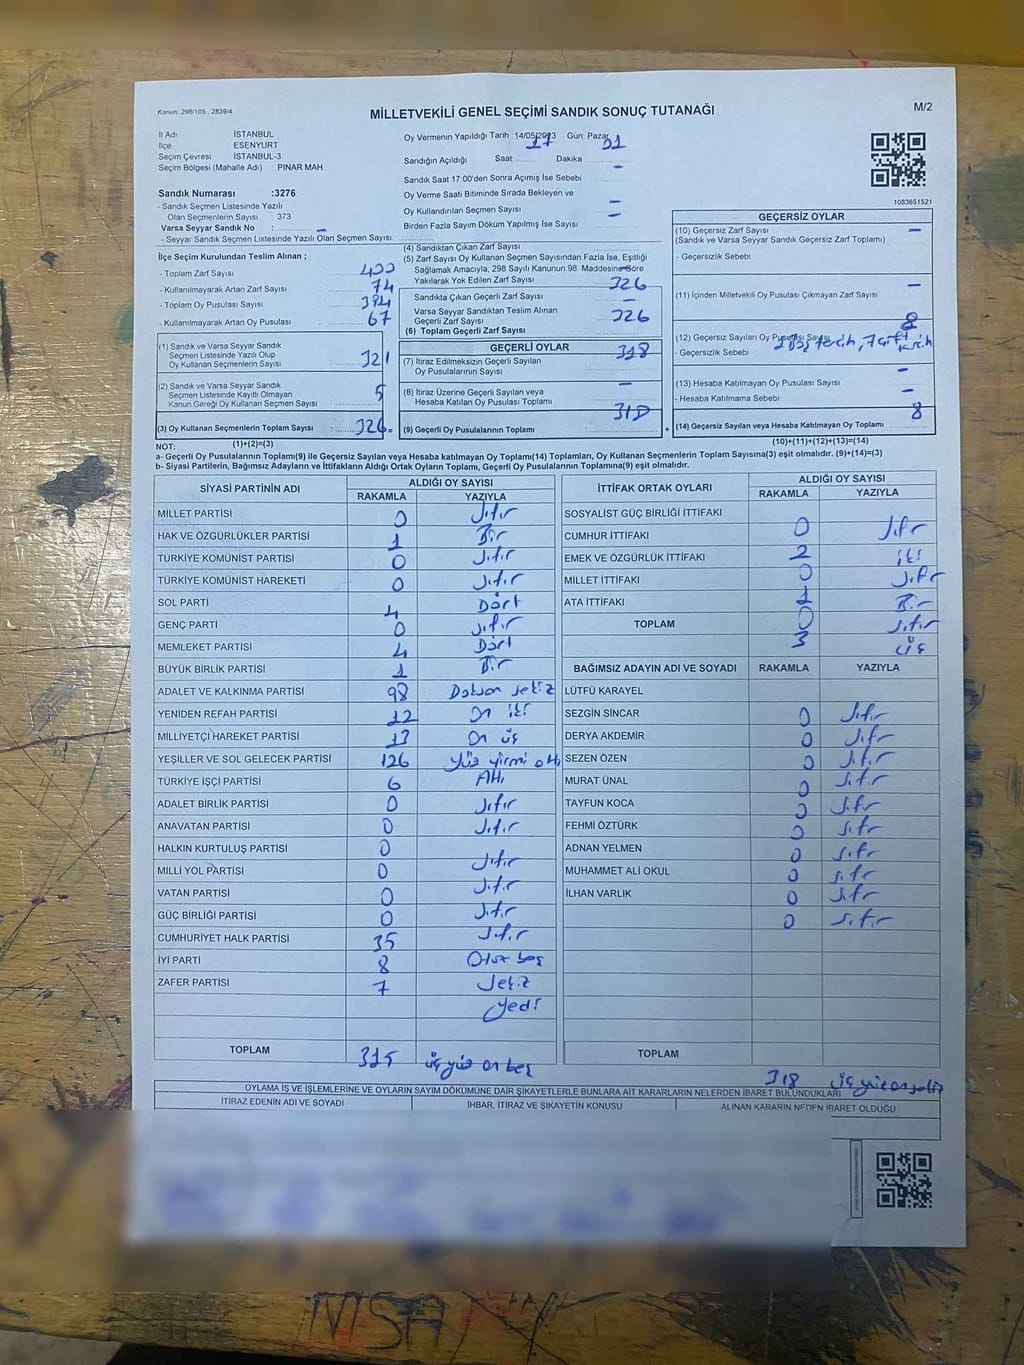 Kanun: 298/105 , 2839/4
MİLLETVEKİLİ GENEL SEÇİMİ SANDIK SONUÇ TUTANAĞI
M/2
İl Adı İSTANBUL
İlçe ESENYURT
Seçim Çevresi İSTANBUL-3
Seçim Bölgesi (Mahalle Adı) : PINAR MAH.
Sandık Numarası :3276
- Sandık Seçmen Listesinde Yazılı
Olan Seçmenlerin Sayısı : 373
Varsa Seyyar Sandık No : –
- Seyyar Sandık Seçmen Listesinde Yazılı Olan Seçmen Sayısı:
Oy Vermenin Yapıldığı Tarih :14/05/2023 Gün: Pazar
Sandığın Açıldığı Saat: 17 Dakika 01
Sandık Saat 17:00'den Sonra Açımış İse Sebebi –
Oy Verme Saati Bitiminde Sırada Bekleyen ve
Oy Kullandırılan Seçmen Sayısı –
Birden Fazla Sayım Döküm Yapılmış İse Sayısı –
1083651521
İlçe Seçim Kurulundan Teslim Alınan ;
- Toplam Zarf Sayısı 400
- Kullanılmayarak Artan Zarf Sayısı 74
- Toplam Oy Pusulası Sayısı
- Kullanılmayarak Artan Oy Pusulası 67
(1) Sandık ve Varsa Seyyar Sandık
Seçmen Listesinde Yazılı Olup
Oy Kullanan Seçmenlerin Sayısı 321
(2) Sandık ve Varsa Seyyar Sandık
Seçmen Listesinde Kayıtlı Olmayan
Kanun Gereği Oy Kullanan Seçmen Sayısı 5
(3) Oy Kullanan Seçmenlerin Toplam Sayısı 326 =
(1)+(2)=(3)
(4) Sandıktan Çıkan Zarf Sayısı
(5) Zarf Sayısı Oy Kullanan Seçmen Sayısından Fazla İse, Eşitliği
Sağlamak Amacıyla; 298 Sayılı Kanunun 98 Maddesine Göre
Yakılarak Yok Edilen Zarf Sayısı
Sandıkta Çıkan Geçerli Zarf Sayısı 326
Varsa Seyyar Sandıktan Teslim Alınan
Geçerli Zarf Sayısı –
(6) Toplam Geçerli Zarf Sayısı 326
GEÇERLİ OYLAR
(7) İtiraz Edilmeksizin Geçerli Sayılan
Oy Pusulalarının Sayısı 318
(8) İtiraz Üzerine Geçerli Sayılan veya
Hesaba Katılan Oy Pusulası Toplamı –
(9) Geçerli Oy Pusulalarının Toplamı 318 +
GEÇERSİZ OYLAR
(10) Geçersiz Zarf Sayısı –
(Sandık ve Varsa Seyyar Sandık Geçersiz Zarf Toplamı)
- Geçersizlik Sebebi
(11) İçinden Milletvekili Oy Pusulası Çıkmayan Zarf Sayısı –
(12) Geçersiz Sayılan Oy Pusulası Sayısı 8
- Geçersizlik Sebebi
(13) Hesaba Katılmayan Oy Pusulası Sayısı –
- Hesaba Katılmama Sebebi –
(14) Geçersiz Sayılan veya Hesaba Katılmayan Oy Toplamı 8
(10)+(11)+(12)+(13)=(14)
NOT:
a- Geçerli Oy Pusulalarının Toplamı(9) ile Geçersiz Sayılan veya Hesaba katılmayan Oy Toplamı(14) Toplamları, Oy Kullanan Seçmenlerin Toplam Sayısına(3) eşit olmalıdır. (9)+(14)=(3)
b- Siyasi Partilerin, Bağımsız Adayların ve İttifakların Aldığı Ortak Oyların Toplamı, Geçerli Oy Pusulalarının Toplamına(9) eşit olmalıdır.
SİYASİ PARTİNİN ADI ALDIĞI OY SAYISI
RAKAMLA YAZIYLA
MİLLET PARTİSİ 0 Sıfır
HAK VE ÖZGÜRLÜKLER PARTİSİ 1 Bir
TÜRKİYE KOMÜNİST PARTİSİ 0 Sıfır
TÜRKİYE KOMÜNİST HAREKETİ 0 Sıfır
SOL PARTİ 4 Dört
GENÇ PARTİ 0 Sıfır
MEMLEKET PARTİSİ 4 Dört
BÜYÜK BİRLİK PARTİSİ 1 Bir
ADALET VE KALKINMA PARTİSİ 98 Doksan sekiz
YENİDEN REFAH PARTİSİ 12 On iki
MİLLİYETÇİ HAREKET PARTİSİ 13 On üç
YEŞİLLER VE SOL GELECEK PARTİSİ 126 Yüz yirmi altı
TÜRKİYE İŞÇİ PARTİSİ 6 Altı
ADALET BİRLİK PARTİSİ 0 Sıfır
ANAVATAN PARTİSİ 0 Sıfır
HALKIN KURTULUŞ PARTİSİ 0
MİLLİ YOL PARTİSİ 0 Sıfır
VATAN PARTİSİ 0 Sıfır
GÜÇ BİRLİĞİ PARTİSİ 0 Sıfır
CUMHURİYET HALK PARTİSİ 35 Sıfır
İYİ PARTİ 8 Otuz beş
ZAFER PARTİSİ 7 Sekiz
Yedi
TOPLAM 315 üç yüz on beş
İTTİFAK ORTAK OYLARI ALDIĞI OY SAYISI
RAKAMLA YAZIYLA
SOSYALİST GÜÇ BİRLİĞİ İTTİFAKI
CUMHUR İTTİFAKI 0 Sıfır
EMEK VE ÖZGÜRLÜK İTTİFAKI 2 iki
MİLLET İTTİFAKI 0 Sıfır
ATA İTTİFAKI 1 Bir
TOPLAM 0 Sıfır
3 üç
BAĞIMSIZ ADAYIN ADI VE SOYADI RAKAMLA YAZIYLA
LÜTFÜ KARAYEL
SEZGİN SİNCAR 0 Sıfır
DERYA AKDEMİR 0 Sıfır
SEZEN ÖZEN 0 Sıfır
MURAT ÜNAL 0 Sıfır
TAYFUN KOCA 0 Sıfır
FEHMİ ÖZTÜRK 0 Sıfır
ADNAN YELMEN 0 Sıfır
MUHAMMET ALİ OKUL 0 Sıfır
İLHAN VARLIK 0 Sıfır
0 Sıfır
TOPLAM
318 üç yüz on sekiz
OYLAMA İŞ VE İŞLEMLERİNE VE OYLARIN SAYIM DÖKÜMÜNE DAİR ŞİKAYETLERLE BUNLARA AİT KARARLARIN NELERDEN İBARET BULUNDUKLARI
İTİRAZ EDENİN ADI VE SOYADI İHBAR, İTİRAZ VE ŞİKAYETİN KONUSU ALINAN KARARIN NEDEN İBARET OLDUĞU